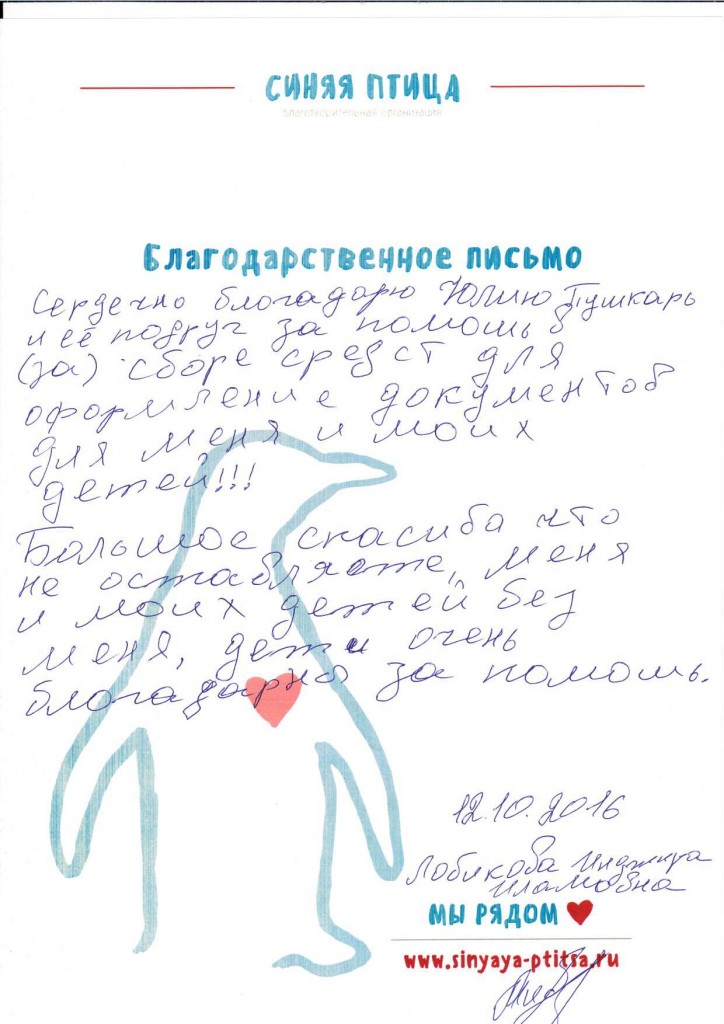 СИНЯЯ ПТИЦА
благотворительная организация
Благодарственное письмо
Сердечно блогадорю Юлию Пушкарь
и её подруг за помошь в
(за) сборе средст для
оформление документов
для меня и моих
детей!!!
Большое спасиба что
не оставляете, меня
и моих детей без
меня, дети очень
блогадарны за помошь.
12.10.2016
Лобикова
Иламовна
МЫ РЯДОМ
www.sinyaya-ptitsa.ru